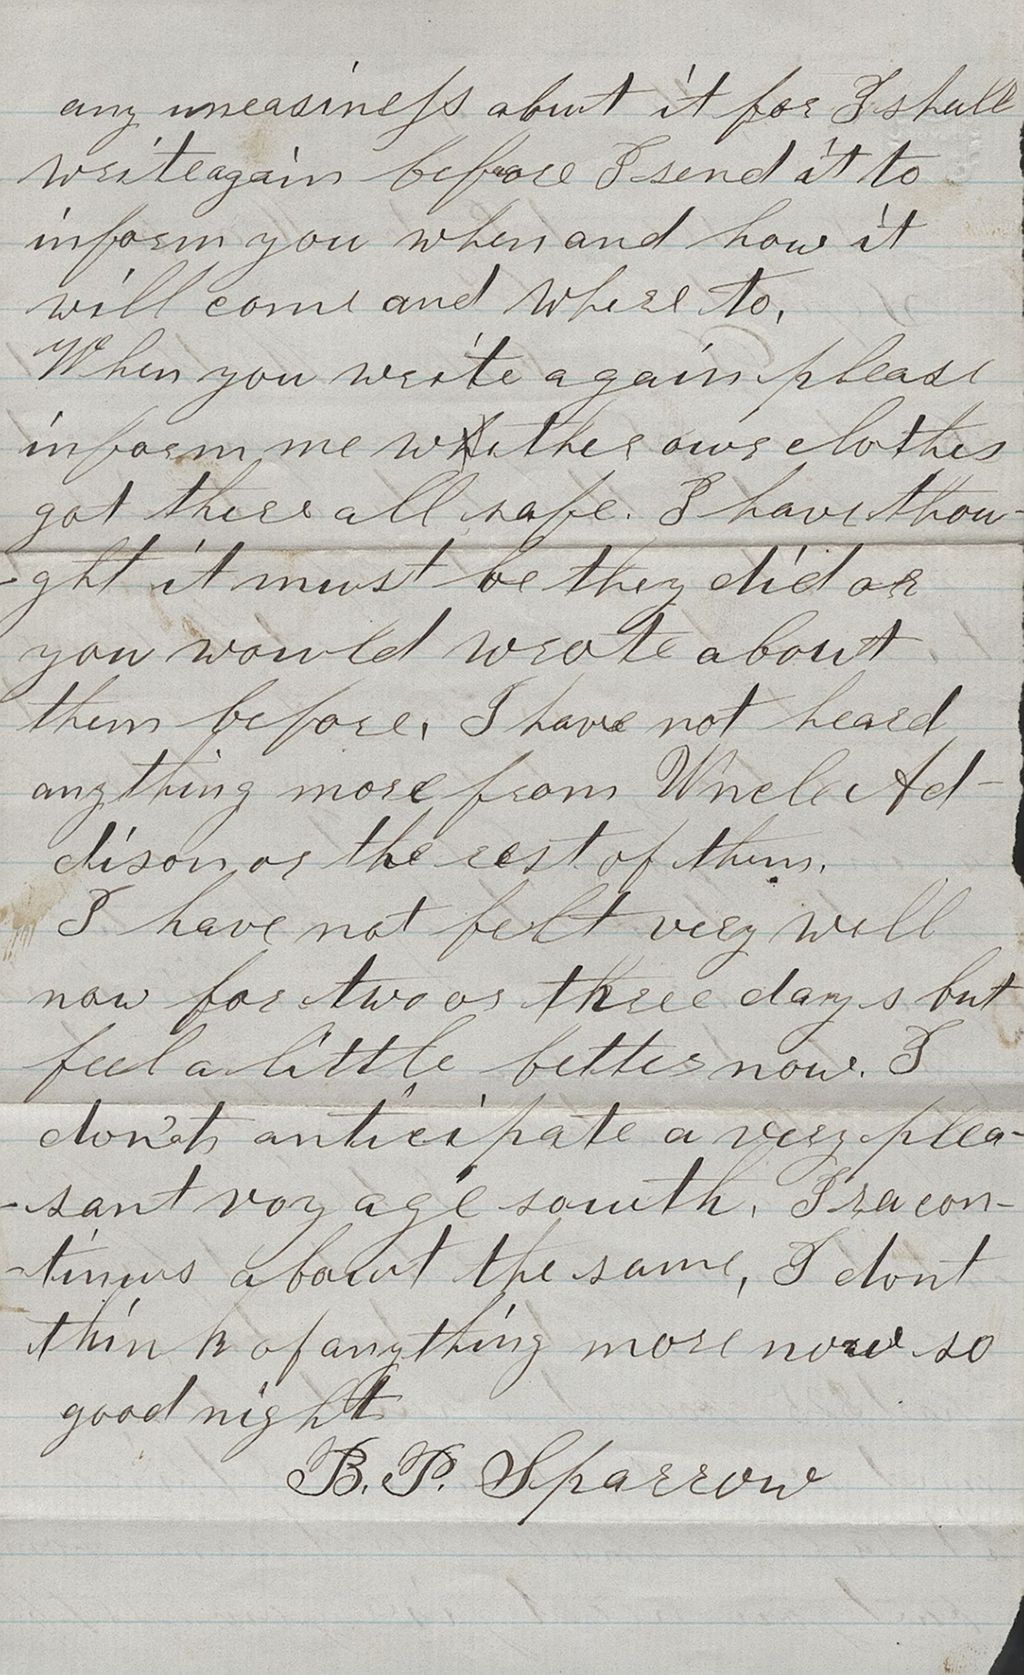 any uneasiness about it for I shall
write again before I send it to
inform you when and how it
will come and where to,
When you write again please
inform me whither our clothes
got there all safe. I have thou-
-ght it must be they did or
you would wrote about
them before, I have not heard
anything more from Uncle Ad-
dison or the rest of them.
I have not felt very well
now for two or three days but
feel a little better now. I
don't anticipate a very plea-
-sant voyage south, Ira con-
-tinus about the same, I dont
think of anything more now so
good night
B. P. Sparrow